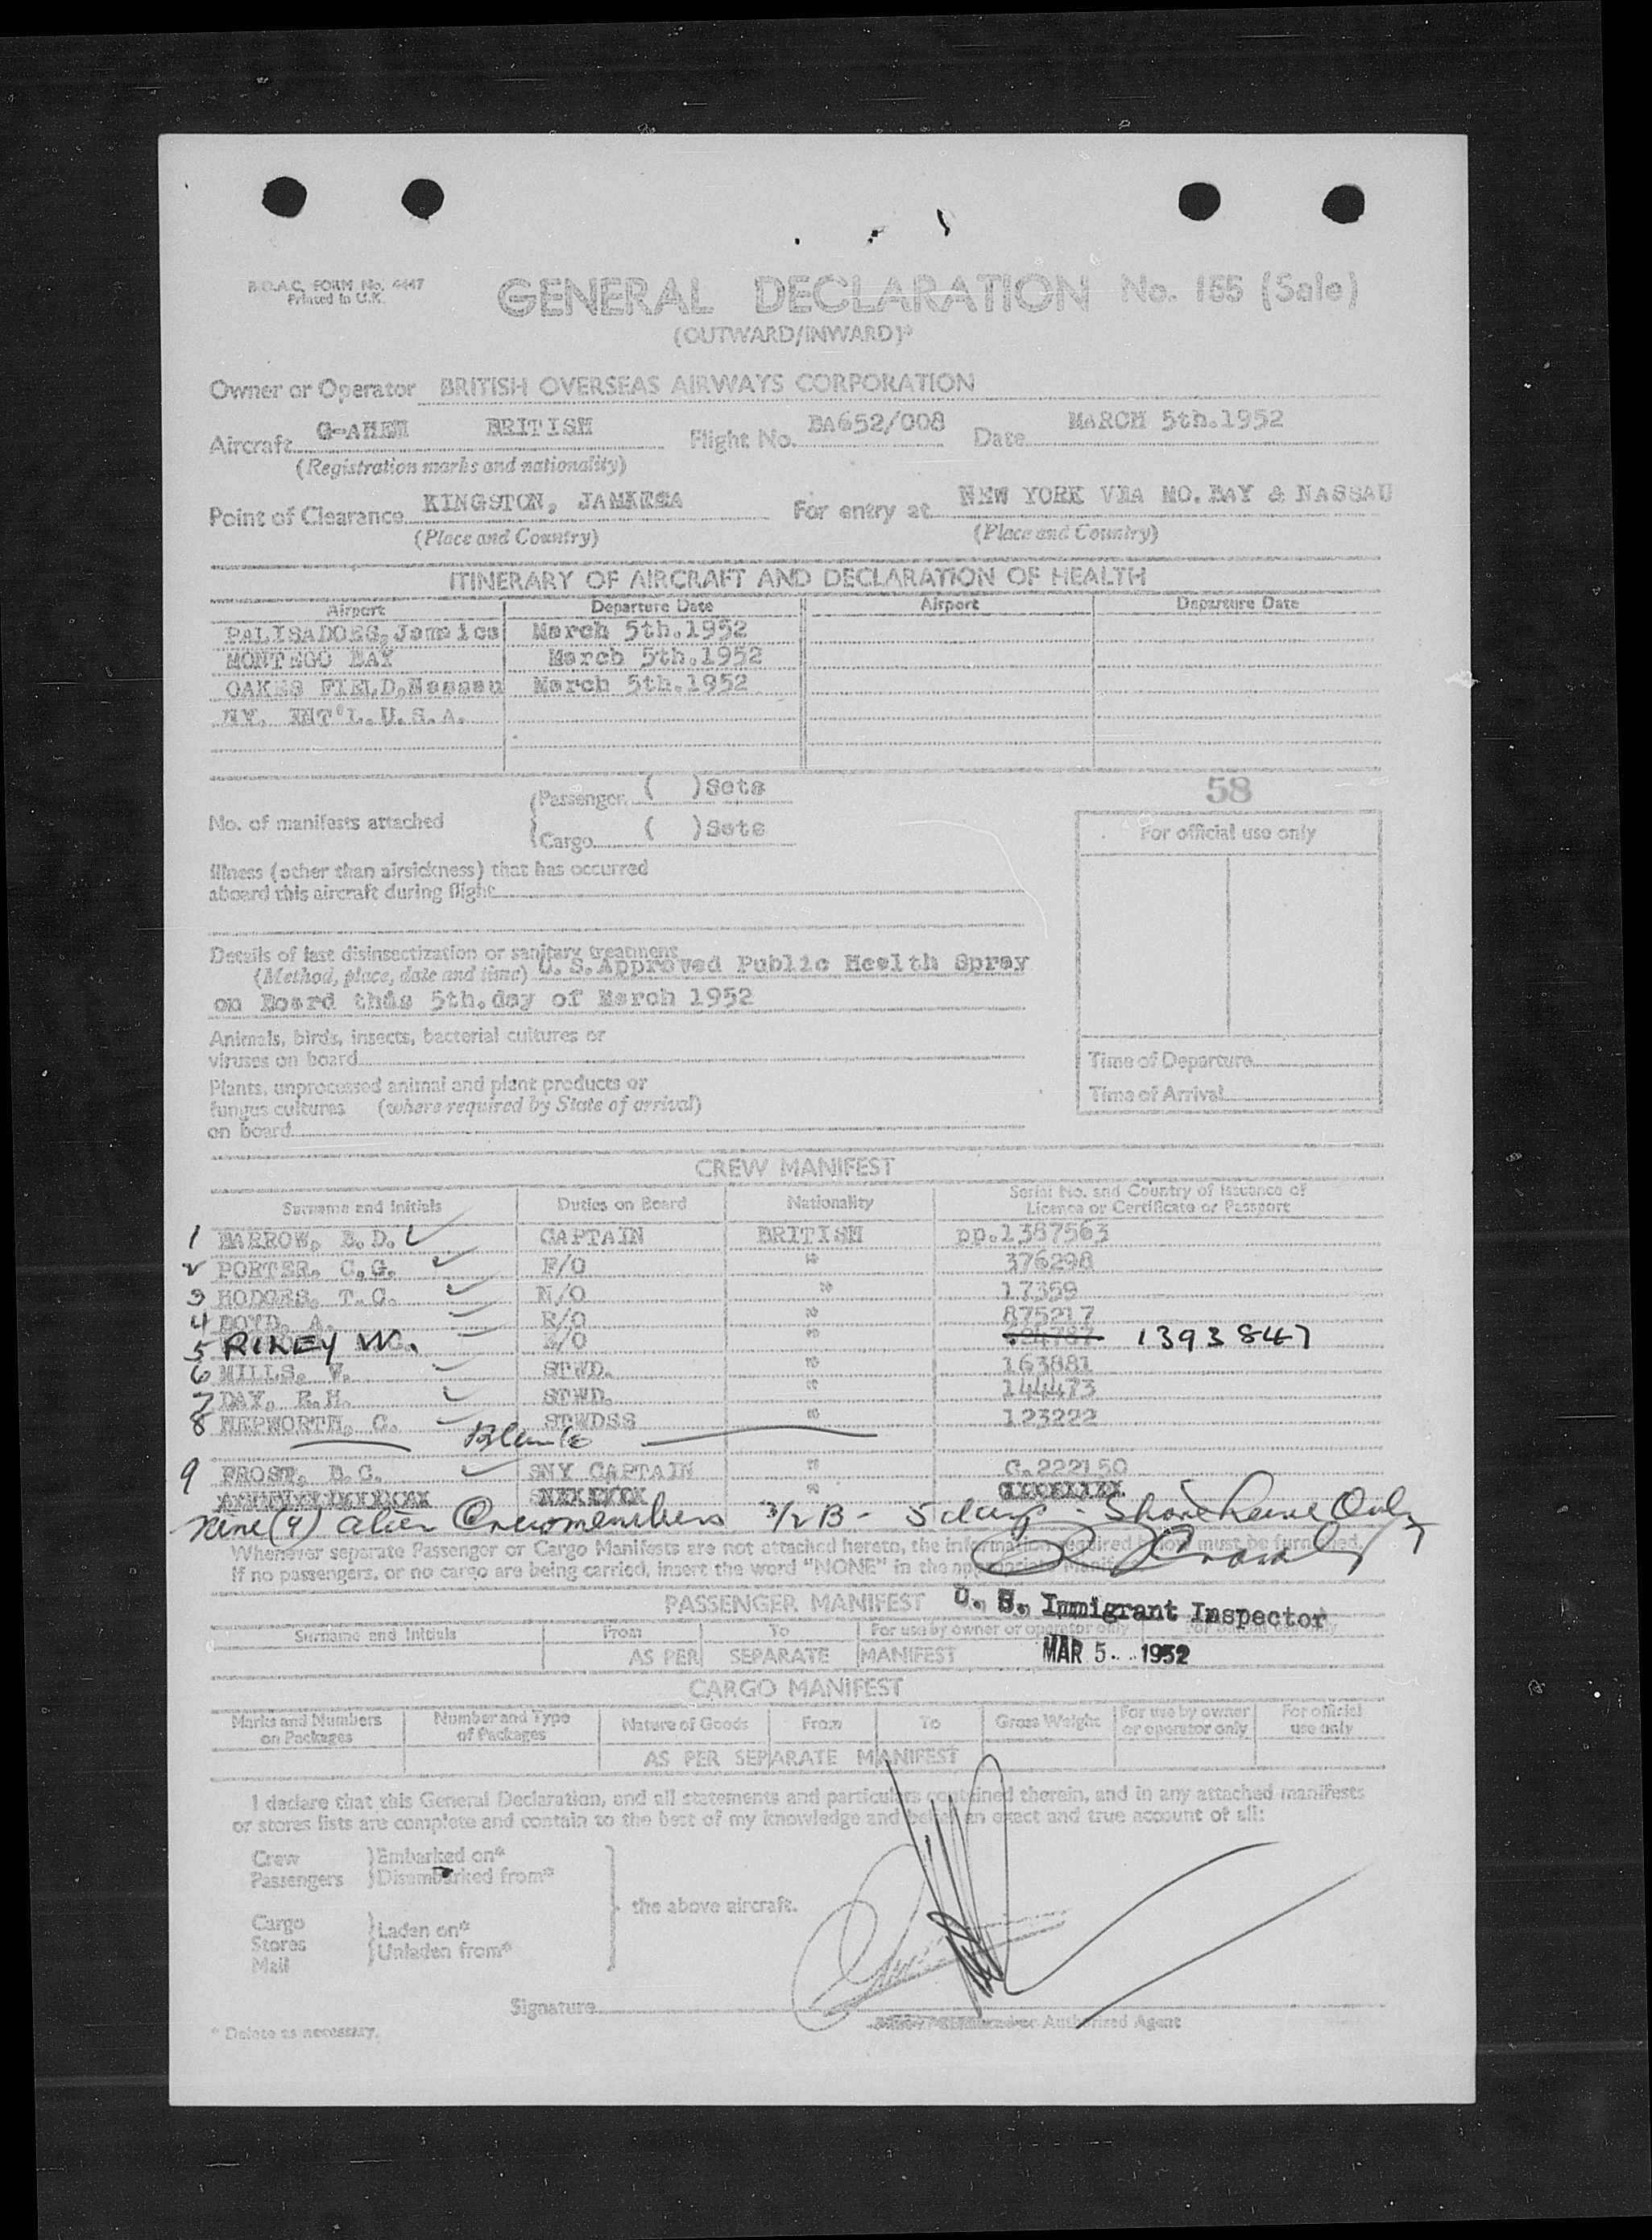 B.O.A.C. FORM No. 4447
Printed in U.K.
GENERAL DECLARATION No. 155 (Sale)
(OUTWARD/INWARD)*
Owner or Operator BRITISH OVERSEAS AIRWAYS CORPORATION
Aircraft G-AHEM BRITISH Flight No. BA652/008 Date MARCH 5th.1952
(Registration marks and nationality)
Point of Clearance KINGSTON, For entry at NEW YORK VIA MO. BAY & NASSAU
(Place and Country) (Place and Country)
ITINERARY OF AIRCRAFT AND DECLARATION OF HEALTH
Airport Departure Date Airport Departure Date
PALISADOES,Jamaica March 5th.1952
MONTEGO BAY March 5th.1952
OAKES FIELD,Nassau March 5th.1952
NY. INT'L.U.S.A.
58
No. of manifests attached
Passenger ( )Sets
Cargo ( )Sets
For official use only
Illness (other than airsickness) that has occurred
aboard this aircraft during flight
Details of last disinsectization or sanitary treatment
(Method, place, date and time) U.S.Approved Public Health Spray
on Board this 5th.day of March 1952
Animals, birds, insects, bacterial cultures or
viruses on board
Time of Departure
Plants, unprocessed animal and plant products or
fungus cultures (where required by State of arrival)
on board
Time of Arrival
CREW MANIFEST
Surname and Initials Duties on Board Nationality Serial No. and Country of Issuance of
Licence or Certificate or Passport
1 BARROW, B.D. CAPTAIN BRITISH pp.1387563
2 PORTER. C.G. F/O " 376298
3 HODGES, T.C. N/O " 17359
4 BOYD, A. R/O " 875217
5 RILEY W. E/O " 1393847
6 MILLS, V. STWD. " 163881
7 DAY, R.H. STWD. " 144473
8 HEPWORTH, G. STWDSS " 123222
Blank
9 FROST, B.C. SNY CAPTAIN " C.222150
Nine (9) alien Crewmembers 3/2 B - 5 days - Shore Leave Only
Whenever separate Passenger or Cargo Manifests are not attached hereto, the information required below must be furnished.
If no passengers, or no cargo are being carried, insert the word "NONE" in the appropriate Manifest
PASSENGER MANIFEST U. S. Immigrant Inspector
Surname and Initials From To For use by owner or operator only For official use only
AS PER SEPARATE MANIFEST MAR 5 1952
CARGO MANIFEST
Marks and Numbers on Packages Number and Type of Packages Nature of Goods From To Gross Weight For use by owner or operator only For official use only
AS PER SEPARATE MANIFEST
I declare that this General Declaration, and all statements and particulars contained therein, and in any attached manifests
or stores lists are complete and contain to the best of my knowledge and belief an exact and true account of all:
Crew
Passengers
Embarked on*
Disembarked from*
the above aircraft.
Cargo
Stores
Mail
Laden on*
Unladen from*
Signature
or Authorised Agent
* Delete as necessary.